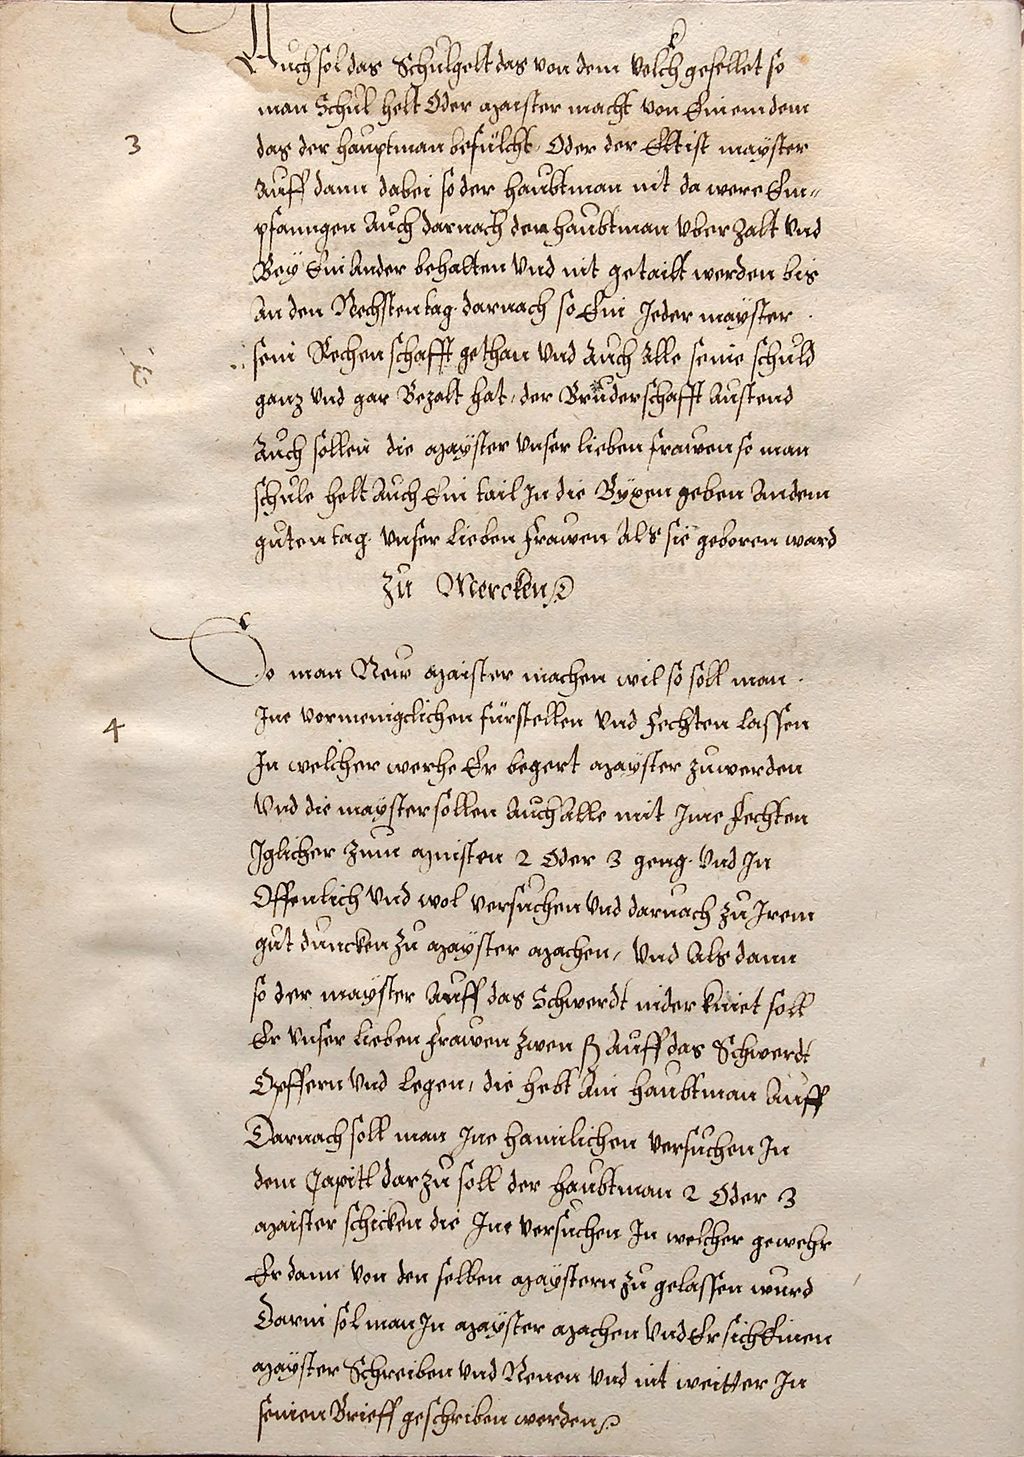 Auch sol das Schulgelt das von dem Volck gefellet so
man Schul helt Oder maister macht von Einem dem
3
das der hauptman befülcht, Oder der Eltist mayster
Auff dann dabei so der haubtman nit da were Em=
pfanngen Auch darnach dem haubtman Vber zalt Vnd
Bey Ein Ander behalten Vnd nit getailt werden bis
An den Nechsten tag darnach so Ein Jeder mayster
sein Rechenschafft gethan Vnd Auch Alle seine schuld
ganz Vnd gar Bezalt hat, der Bruderschafft Austend
Auch sollen die mayster Vnser lieben frawen so man
schule helt Auch Ein tail In die Byxen geben An dem
guten tag Vnser Lieben Frawen Als sie geboren ward
Zu Mercken
So man New maister machen wil so soll man
4
Ine vormenigclichen fürstellen Vnd Fechten Lassen
In welcher werhe Er begert mayster zuwerden
Vnd die mayster sollen Auch Alle mit Ime Fechten
Iglicher zum minsten 2 Oder 3 geng Vnd In
Offenlich Vnd wol versuchen Vnd darnach zu Irem
gut duncken zu mayster machen, Vnd Als dann
so der mayster Auff das Schwerdt nider kniet soll
Er Vnser Lieben Frawen zwen ß Auff das Schwerdt
Opffern Vnd Legen, die hebt Ain haubtman Auff
Darnach soll man Ine hamilichen versuchen In
dem Capitl darzu soll der haubtman 2 Oder 3
maister schicken die Ine versuchen In welcher gewehr
Er dann von den selben maystern zu gelassen wurd
Darin sol man In mayster machen Vnd Er sich Einen
mayster Schreiben Vnd Nenen Vnd nit weitter In
seinen Brieff geschriben werden